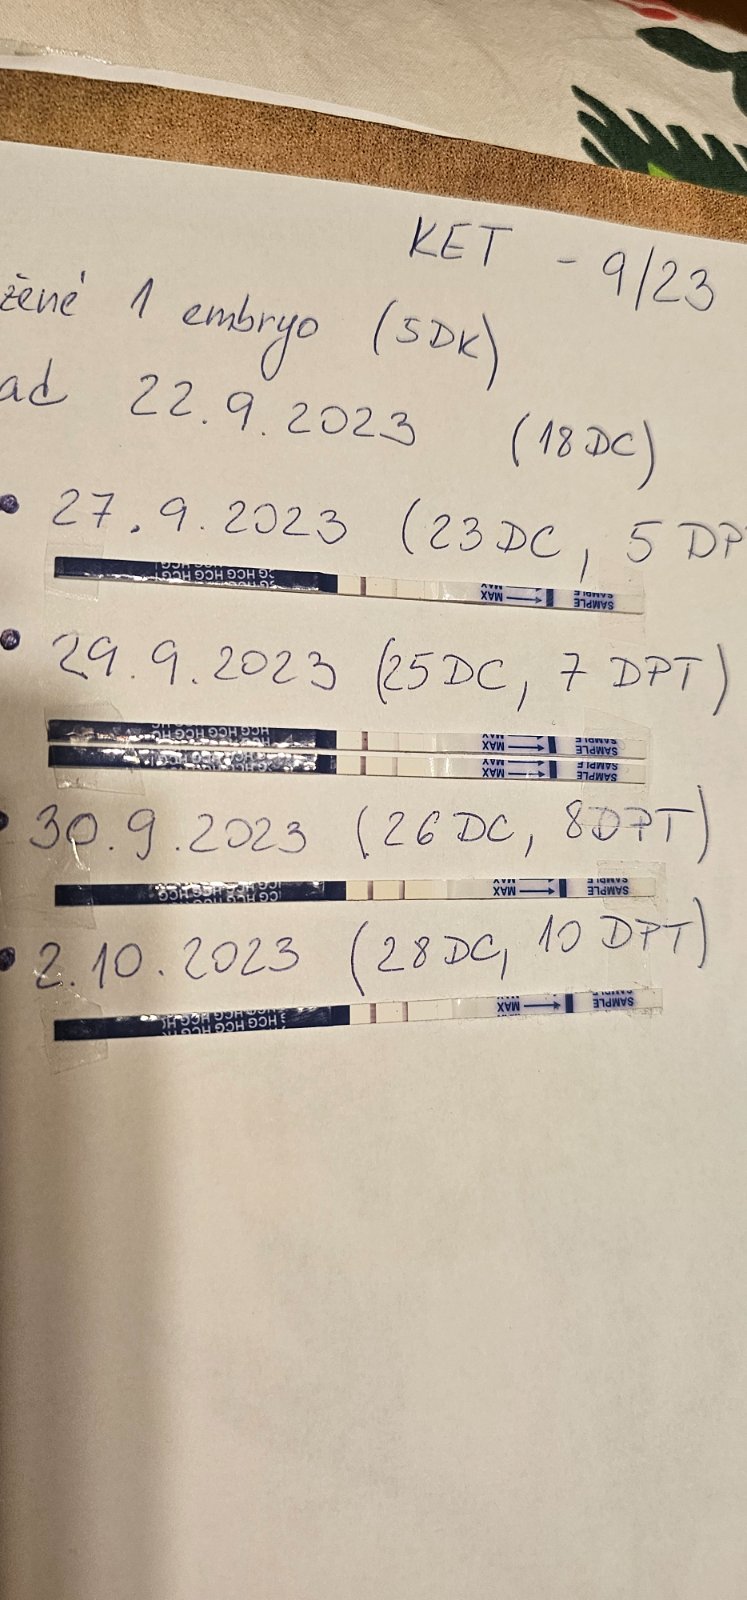 KET - 9/23
žené 1 embryo (5DK)
ad 22.9.2023 (18DC)
• 27.9.2023 (23DC, 5 DP
HCG HCG HCG
MAX SAMPLE
• 29.9.2023 (25DC, 7 DPT)
HCG HCG HCG HCG
MAX SAMPLE
MAX SAMPLE
• 30.9.2023 (26DC, 8DPT)
HCG HCG HCG
MAX SAMPLE
• 2.10.2023 (28DC, 10 DPT)
HCG HCG HCG HCG
MAX SAMPLE